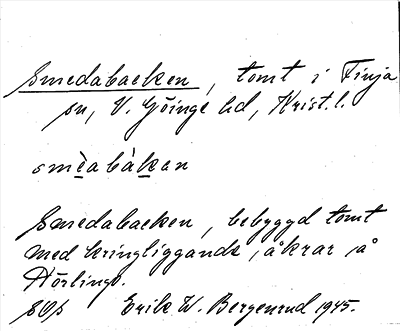 Smedabacken, tomt i Finja
sn, V. Göinge hd, Krist. l.
smèabàkan
Smedabacken, bebyggd tomt
med kringliggande åkrar på
Hörlinge.
Erik W. Bergenrud 1945.